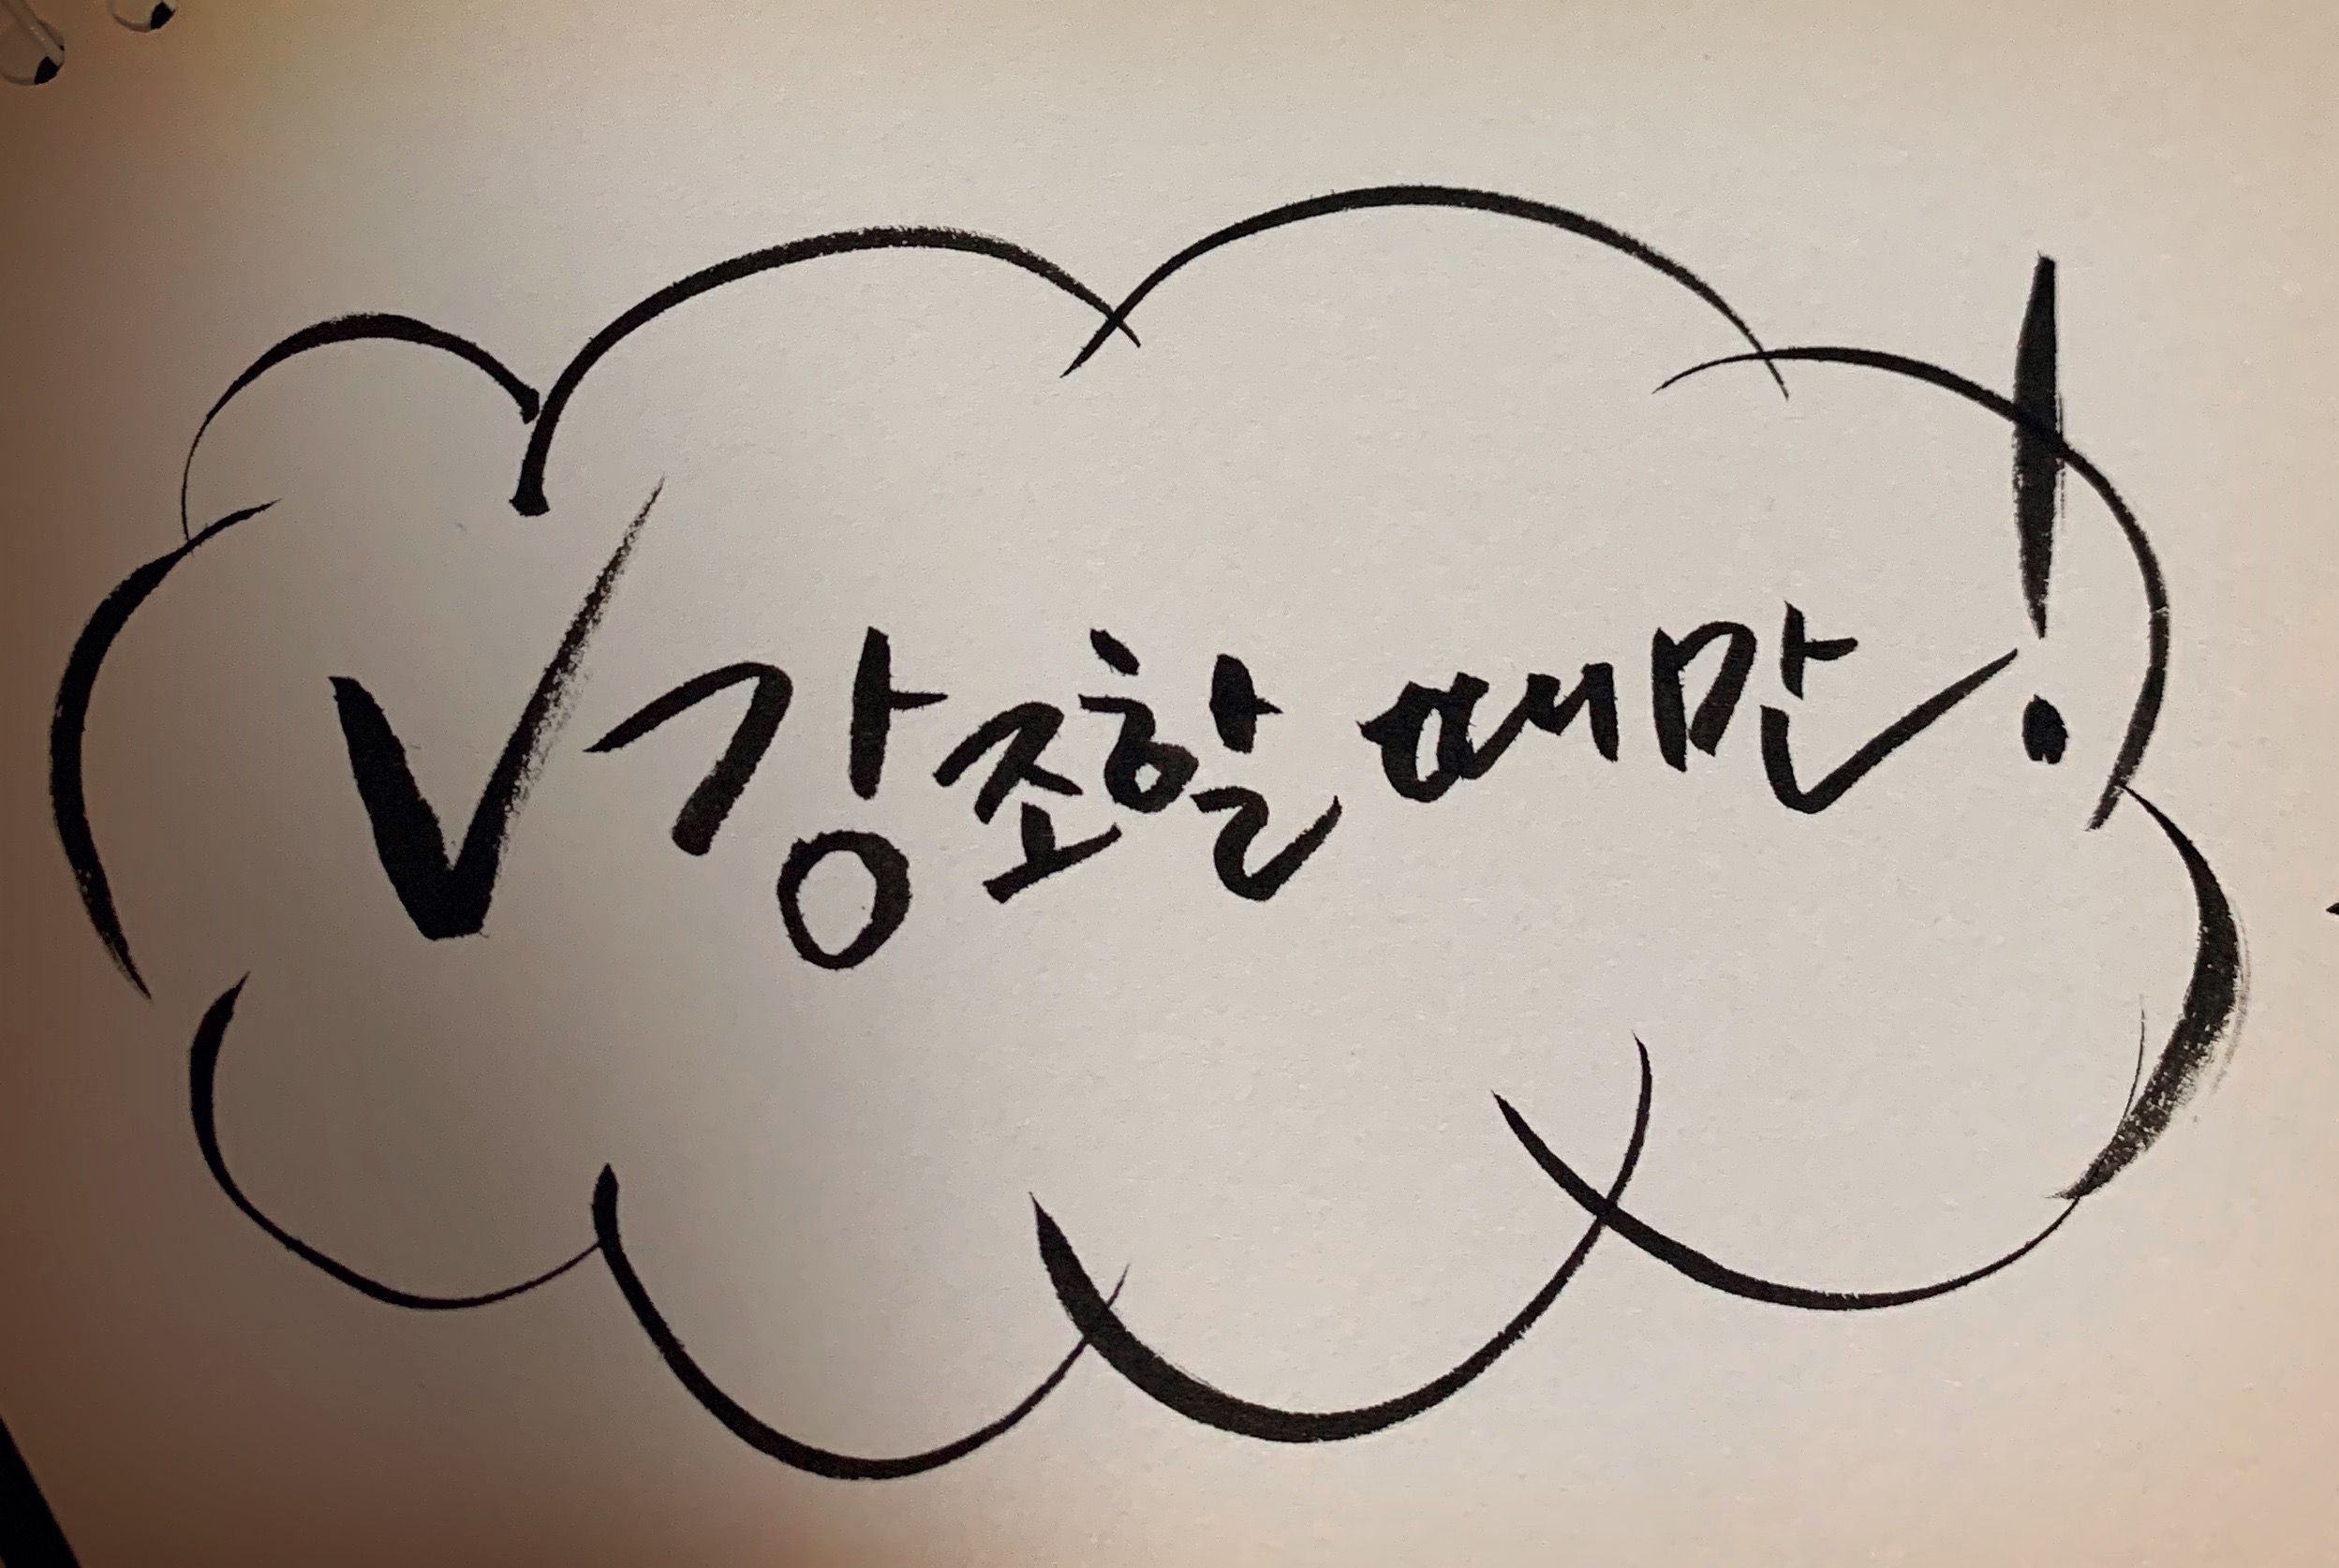 ✓강조할 때만!